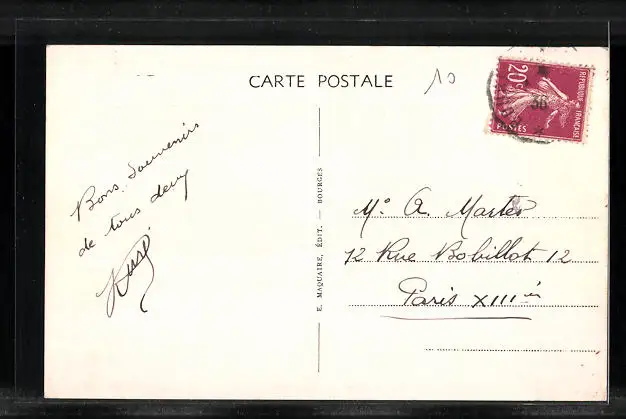 CARTE POSTALE
10
20c
REPUBLIQUE FRANÇAISE
POSTES
38
Bons Souvenirs
de tous deux
E. MAQUAIRE, ÉDIT. — BOURGES
Mr A. Martes
12 Rue Bobillot 12
Paris XIIIè